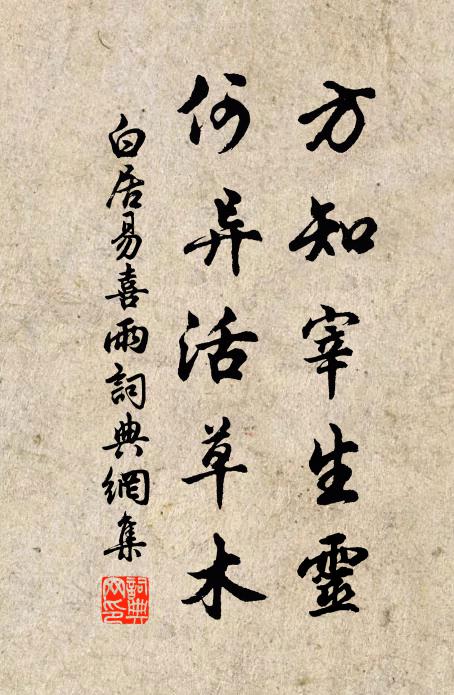 方知宰生靈
何异活草木
白居易喜雨詞典網集
詞典
网印